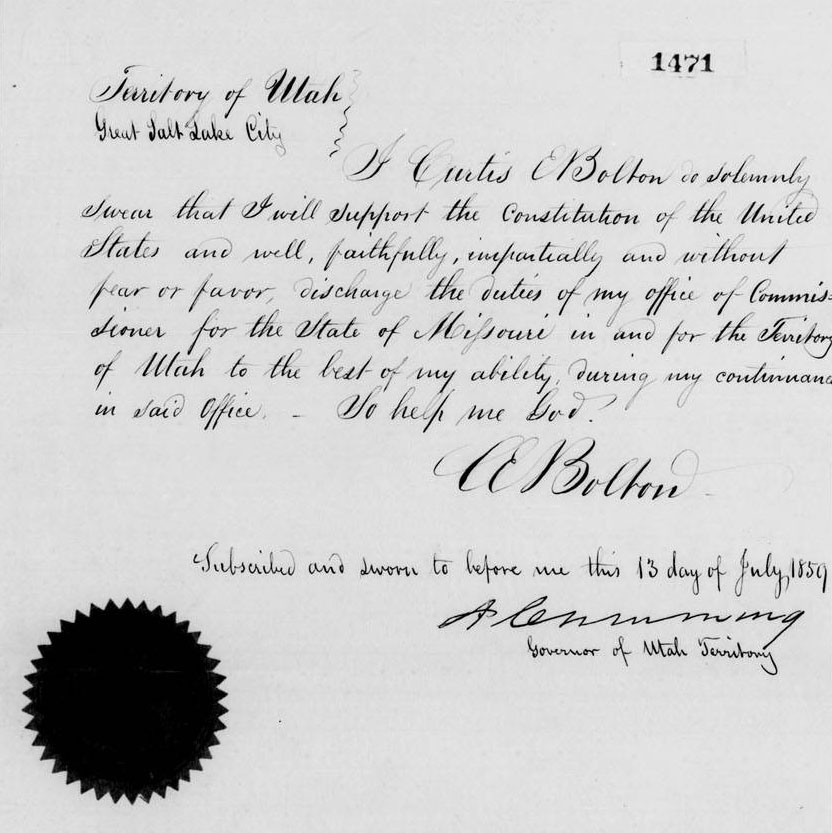 1471
Territory of Utah
Great Salt Lake City
I Curtis E Bolton do solemnly
swear that I will support the Constitution of the United
States and well, faithfully, impartially and without
fear or favor, discharge the duties of my office of Commis-
sioner for the State of Missouri in and for the Territory
of Utah to the best of my ability, during my continuance
in said Office. – So help me God.
C E Bolton
Subscribed and sworn to before me this 13 day of July, 1859
A Cumming
Governor of Utah Territory